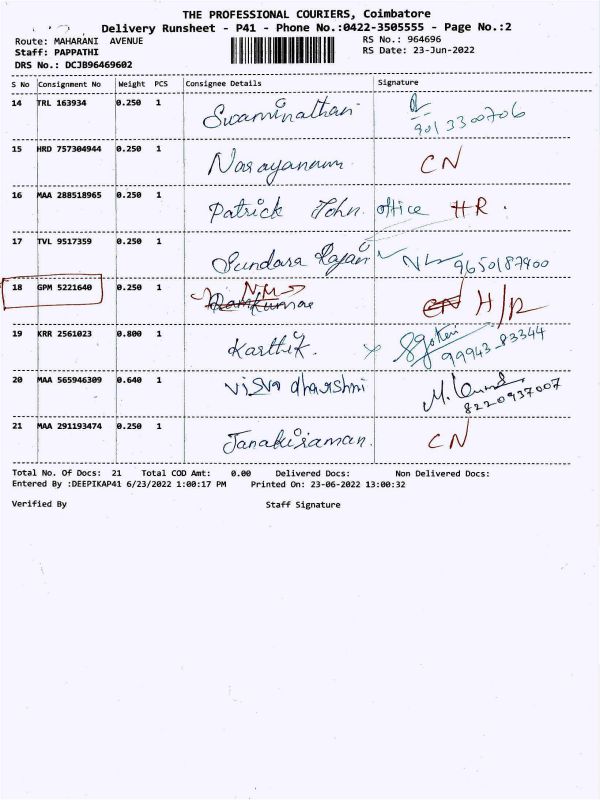 THE PROFESSIONAL COURIERS, Coimbatore
Delivery Runsheet - P41 - Phone No.:0422-3505555 - Page No.:2
Route: MAHARANI AVENUE RS No.: 964696
Staff: PAPPATHI RS Date: 23-Jun-2022
DRS No.: DCJB96469602
S No Consignment No Weight PCS Consignee Details Signature
14 TRL 163934 0.250 1 Swaminathan 9013300706
15 HRD 757304944 0.250 1 Narayanan CN
16 MAA 288518965 0.250 1 Patrick John office HR.
17 TVL 9517359 0.250 1 Sundara Rajan 9650187900
18 GPM 5221640 0.250 1 Ramkumar N.M CN H/R
19 KRR 2561023 0.800 1 Karthik. 99943-83344
20 MAA 565946309 0.640 1 visva dharshni 8220937007
21 MAA 291193474 0.250 1 Janakiraman. CN
Total No. Of Docs: 21 Total COD Amt: 0.00 Delivered Docs: Non Delivered Docs:
Entered By :DEEPIKAP41 6/23/2022 1:00:17 PM Printed On: 23-06-2022 13:00:32
Verified By Staff Signature